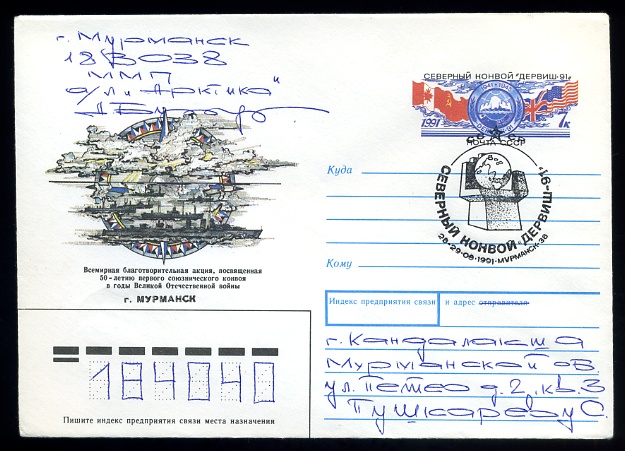 г. Мурманск
183038
ММП
а/л "Арктика"
СЕВЕРНЫЙ КОНВОЙ "ДЕРВИШ-91"
1941·1945
1991
7к
ПОЧТА СССР
СЕВЕРНЫЙ КОНВОЙ «ДЕРВИШ-91»
28-29-08-1991-МУРМАНСК-38
Куда
Кому
Всемирная благотворительная акция, посвященная
50-летию первого союзнического конвоя
в годы Великой Отечественной войны
г. МУРМАНСК
Индекс предприятия связи и адрес отправителя
г. Кандалакша
Мурманской об.
ул. д. 2, кв. 3
Пушкареву С.
184040
Пишите индекс предприятия связи места назначения